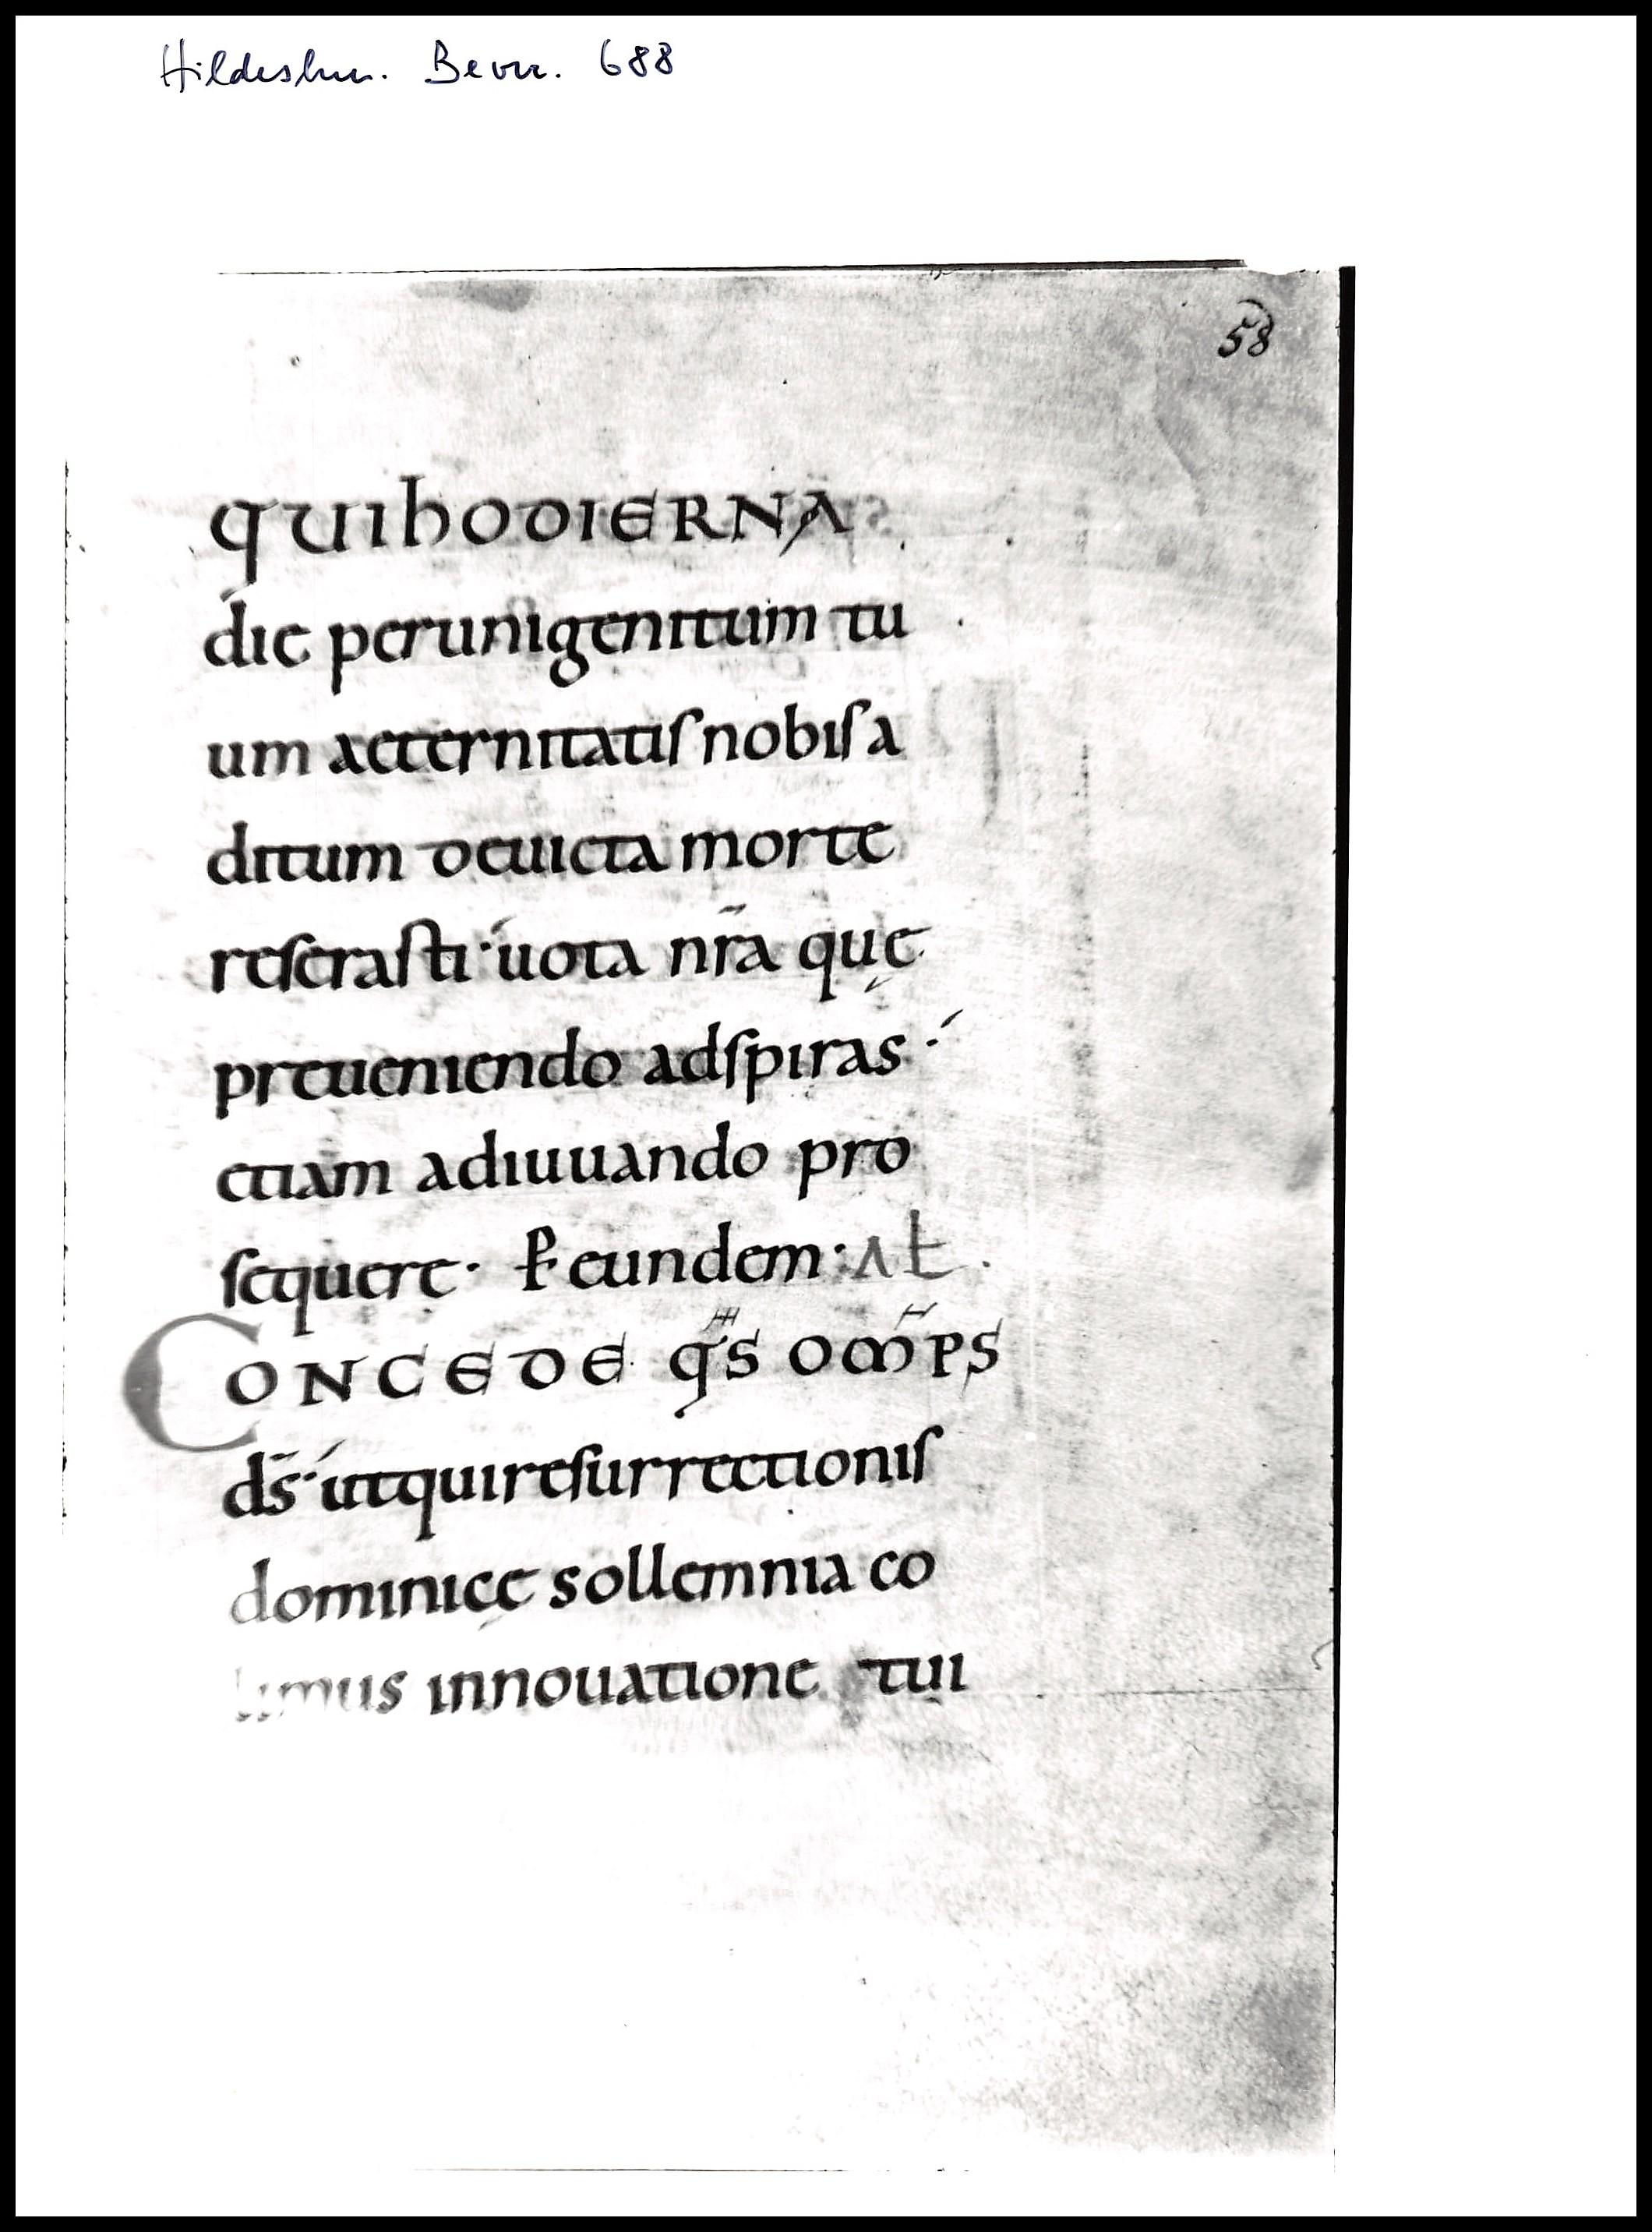 Hildeshm. Bever. 688
58
QUI HODIERNA
die per unigenitum tu
um aeternitatis nobis a
ditum deuicta morte
reserasti· uota nr̄a quę
preueniendo adspiras·
etiam adiuuando pro
sequere· P̄ eundem· Aƚ.
CONCEDE q̄s OM̄PS
d̄s· ut qui resurrectionis
dominicę sollemnia co
limus innouatione tui